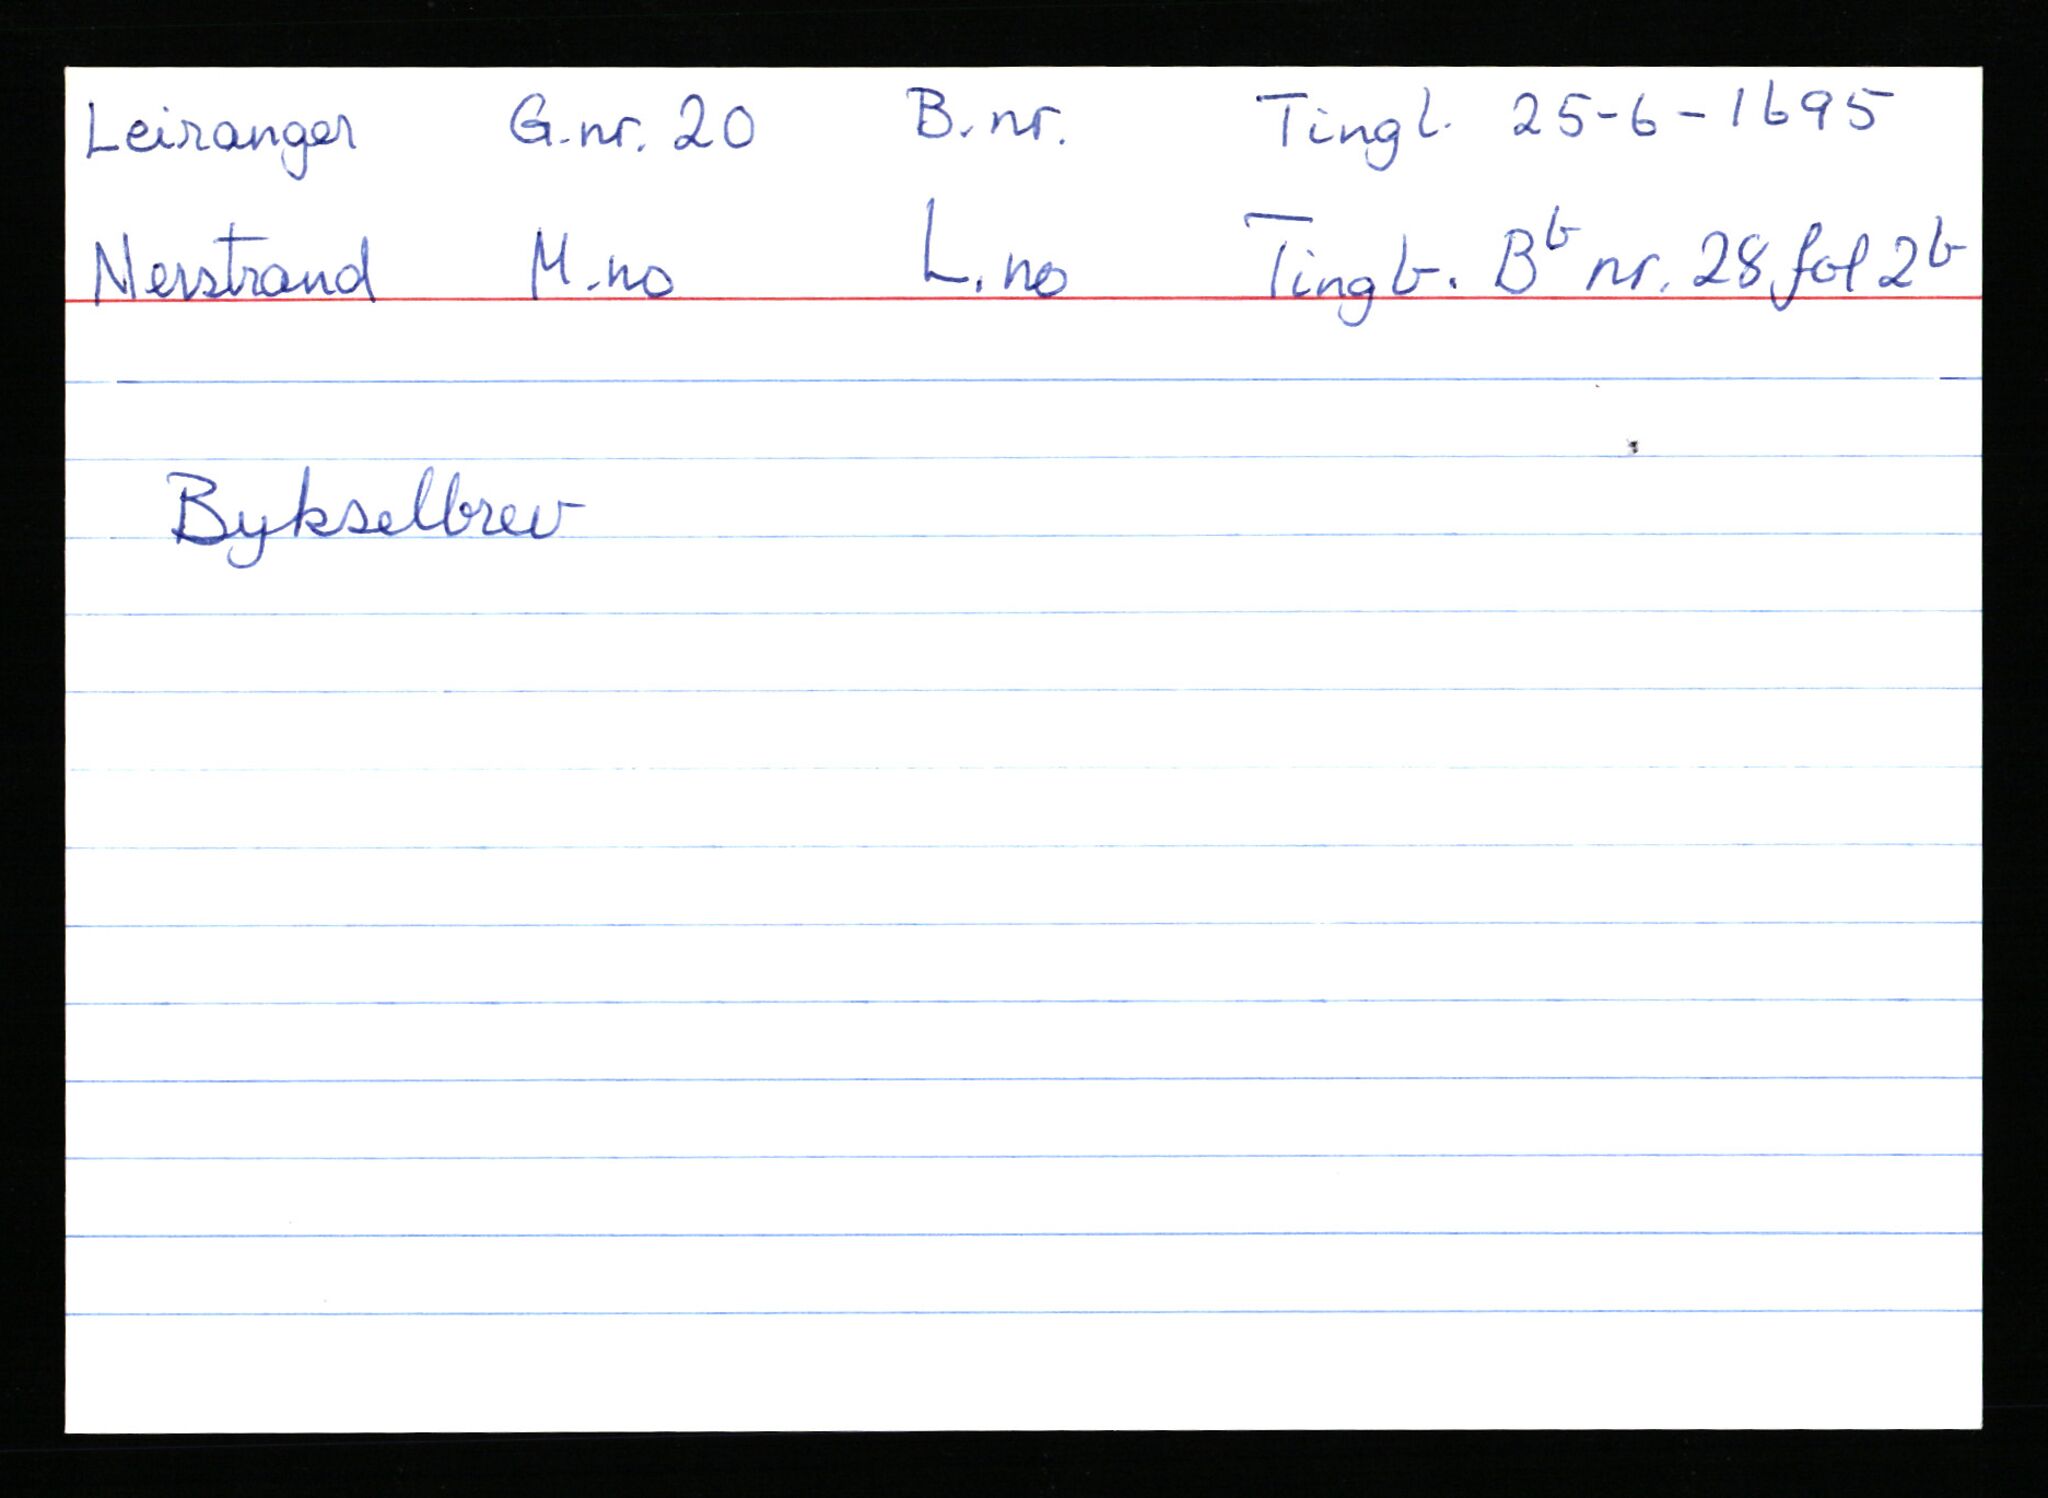 Leiranger G.nr. 20 B.nr. Tingl. 25-6-1695
Nerstrand M.no L.no Tingb. Bᵇ nr. 28 fol 2ᵇ
Bykselbrev